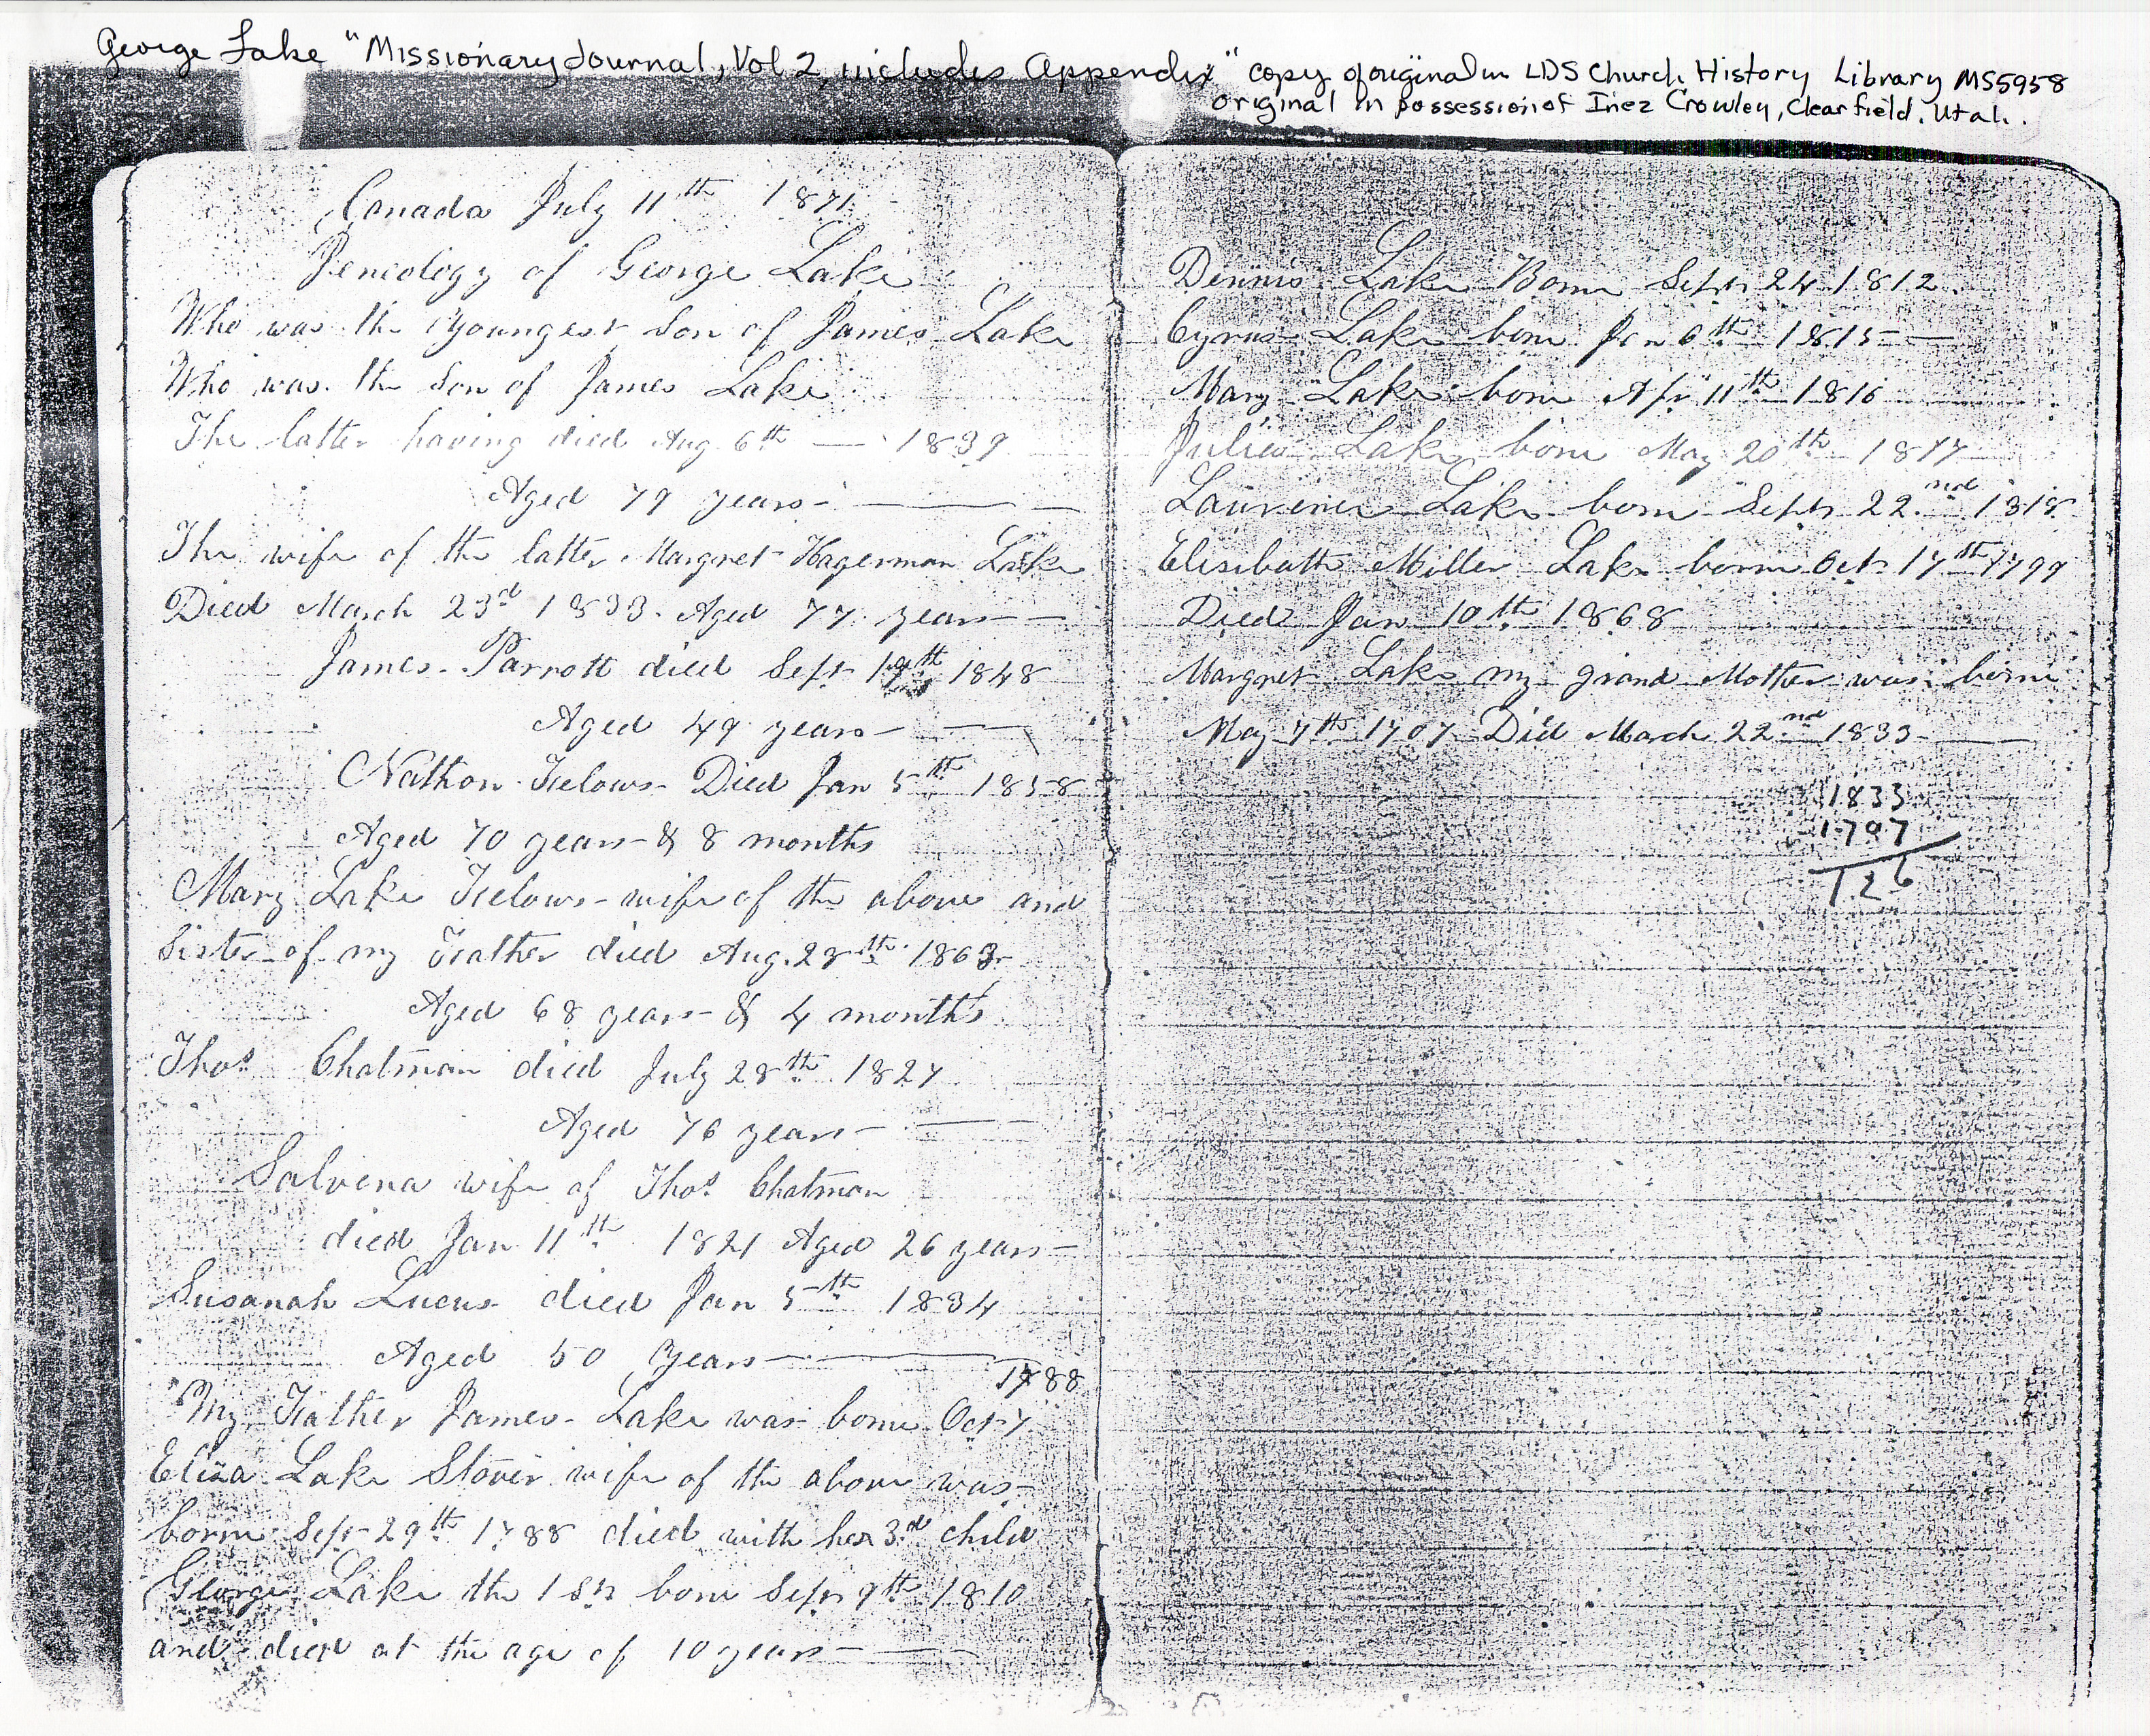 George Lake "Missionary Journal, Vol 2, includes Appendix" copy of original in LDS Church History Library MS5958
original in possession of Inez Crowley, Clearfield, Utah.
Canada July 11th 1871
Geneology of George Lake
Who was the Youngest Son of James Lake
Who was the Son of James Lake
The latter having died Aug 6th — 1839
Aged 79 years
The wife of the latter Margret Hagerman Lake
Died March 23d 1833. Aged 77 years
James Parrott died Sept 19th 1848
Aged 49 years
Nathon Felows Died Jan 5th 1858
Aged 70 years & 8 months
Mary Lake Felows wife of the above and
Sister of my Father died Aug. 28th 1863
Aged 68 years & 4 months
Thos Chatman died July 28th 1827
Aged 76 years
Salvena wife of Thos Chatman
died Jan 11th 1821 Aged 26 years
Susanah Lucus died Jan 5th 1834
Aged 50 Years
1788
My Father James Lake was born Oct 7
Eliza Lake Stover wife of the above was
born Sept 29th 1788 died with her 3rd child
George Lake the 1st born Sept 9th 1810
and died at the age of 10 years
Dennis Lake Born Sept 24 1812
Cyrus Lake born Jan 6th 1815
Mary Lake born Apr 11th 1816
Lake born May 20th 1817
Lake born Sept 22nd 1819
Elisibath Miller Lake born Oct 17th 1799
Died Jan 10th 1868
Margret Lake my grand Mother was born
May 7th 1707 Died March 22nd 1833
1833
1707
126